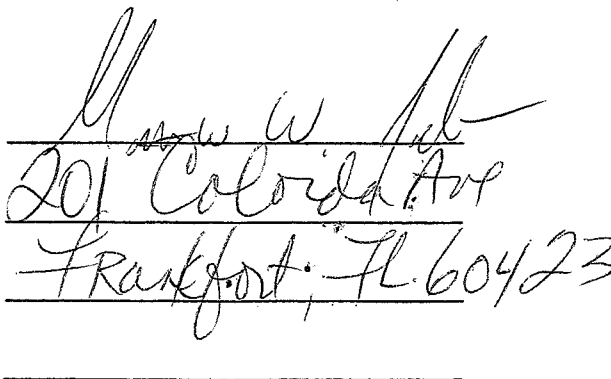 W
201 Colorida Ave
Frankfort, IL 60423